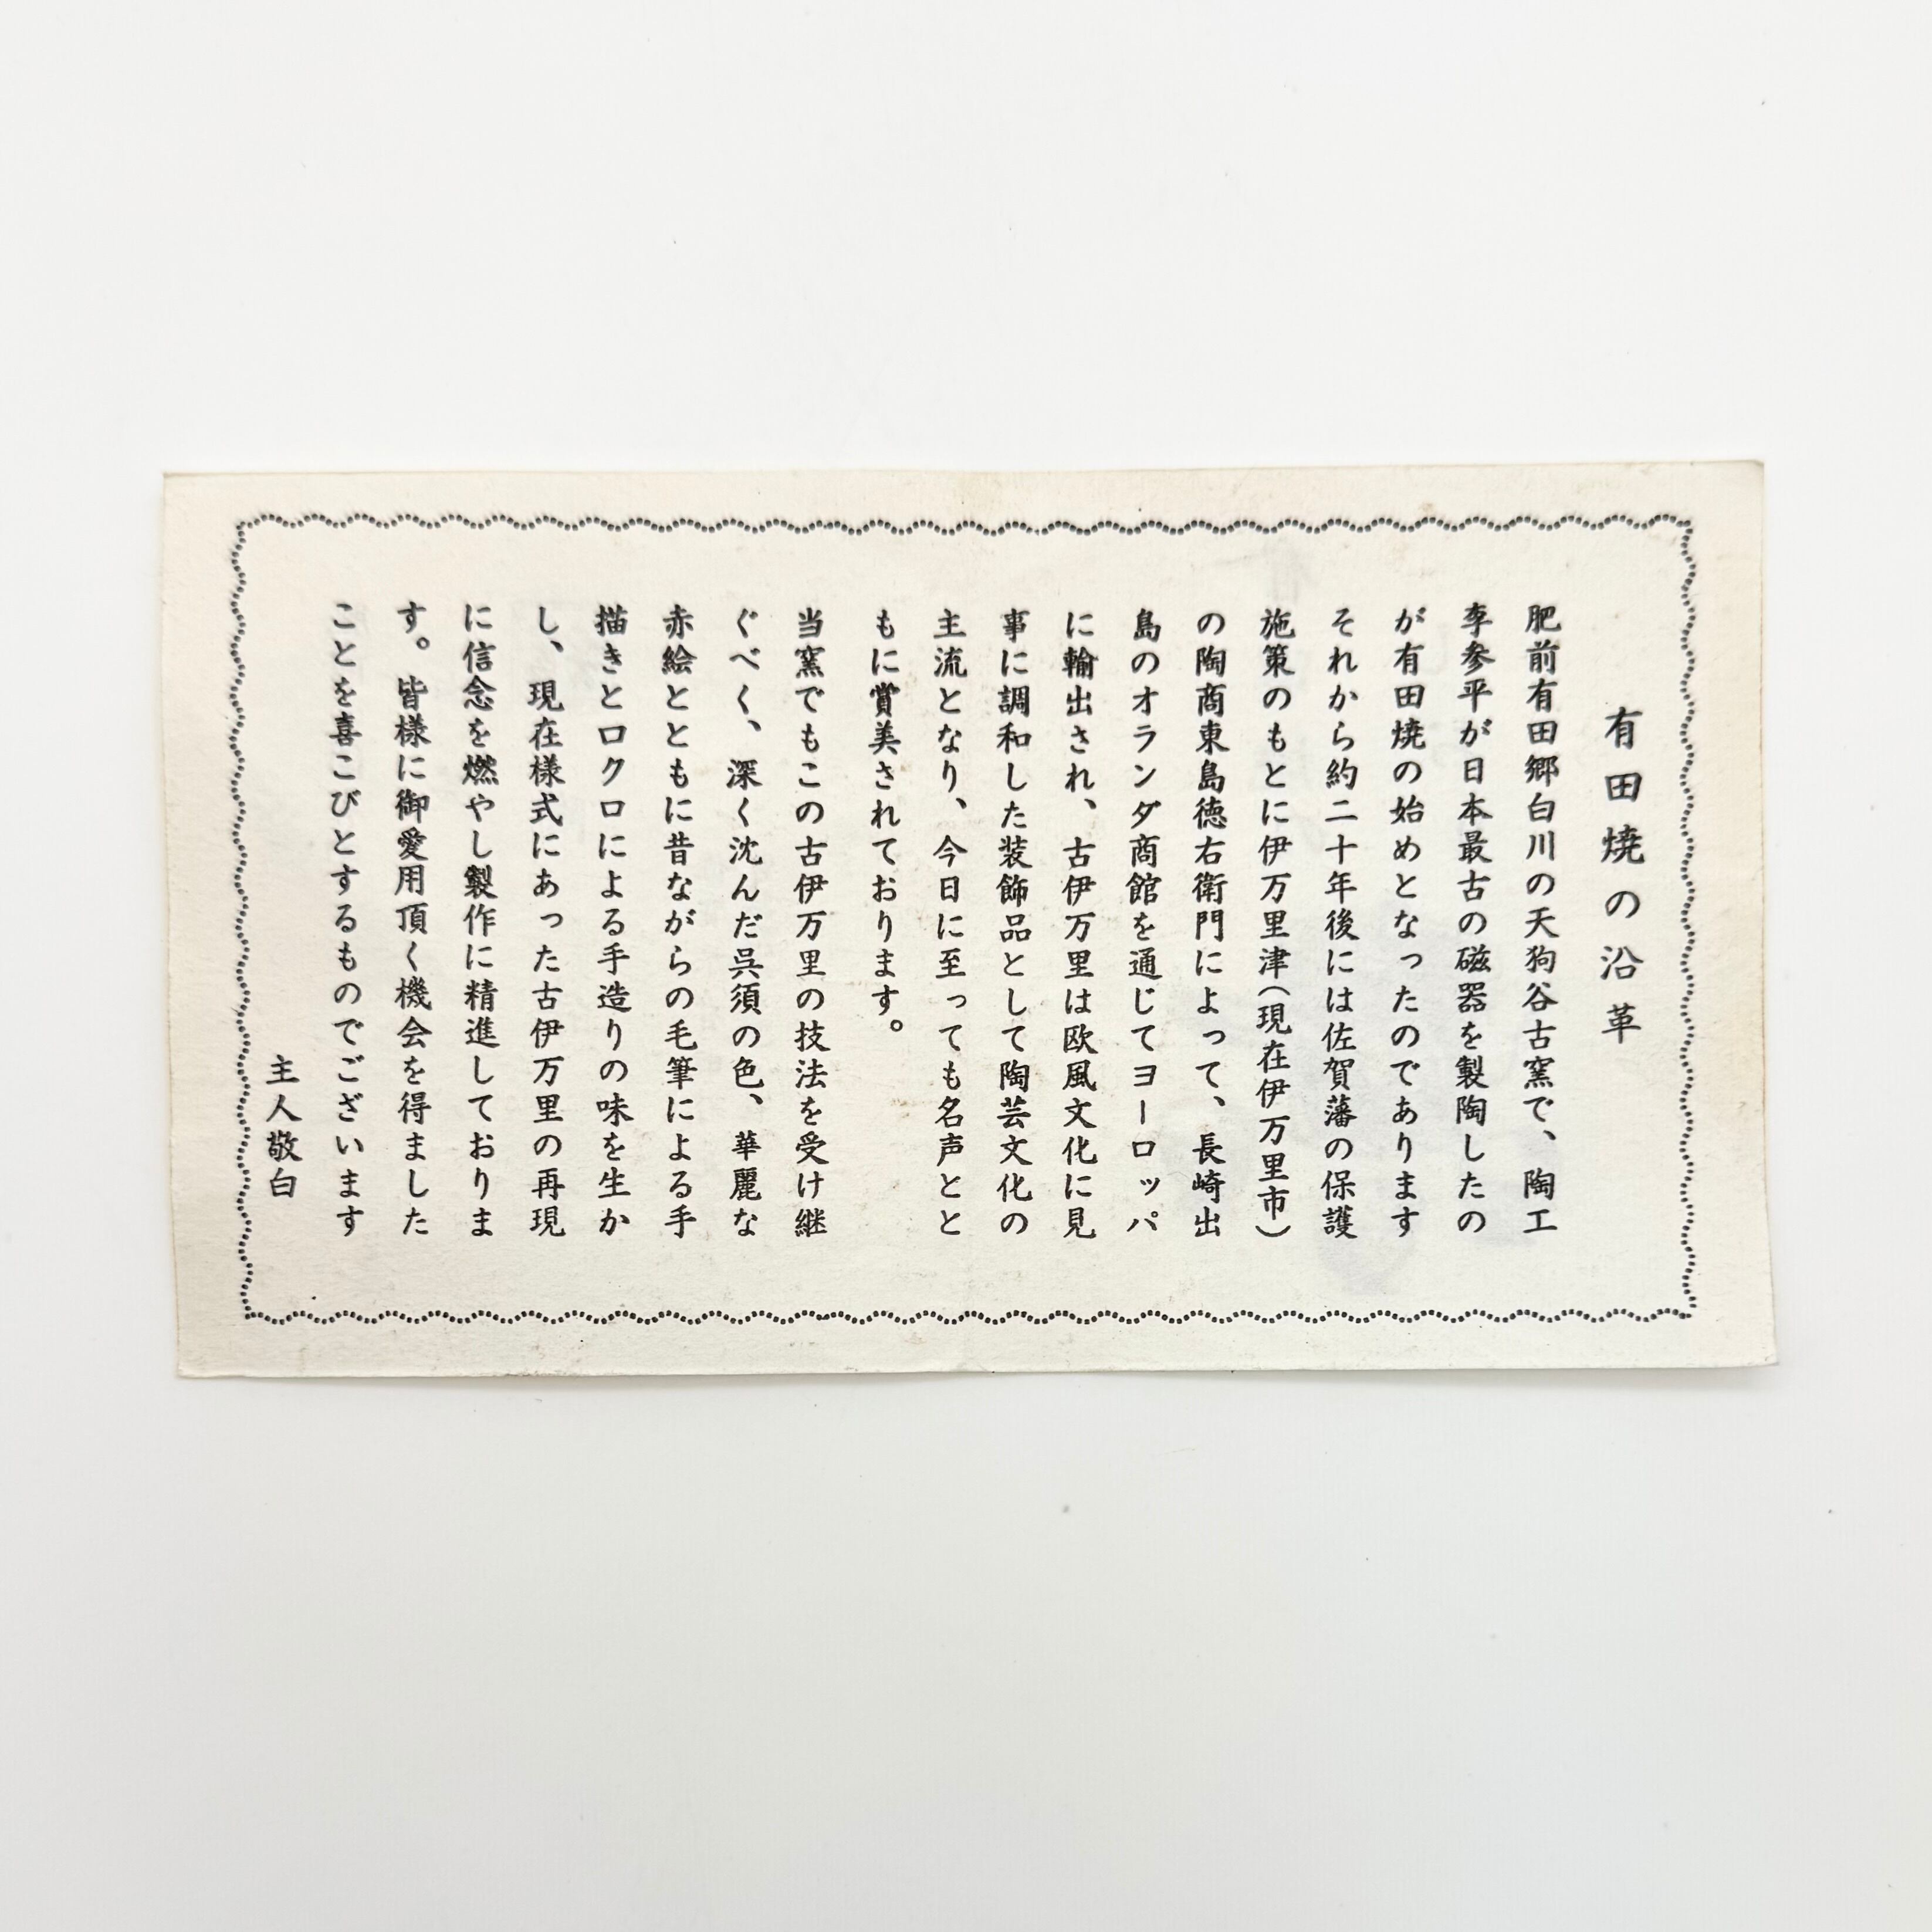 有田焼の沿革
肥前有田郷白川の天狗谷古窯で、陶工
李参平が日本最古の磁器を製陶したの
が有田焼の始めとなったのであります
それから約二十年後には佐賀藩の保護
施策のもとに伊万里津(現在伊万里市)
の陶商東島徳右衛門によって、長崎出
島のオランダ商館を通じてヨーロッパ
に輸出され、古伊万里は欧風文化に見
事に調和した装飾品として陶芸文化の
主流となり、今日に至っても名声とと
もに賞美されております。
当窯でもこの古伊万里の技法を受け継
ぐべく、深く沈んだ呉須の色、華麗な
赤絵とともに昔ながらの毛筆による手
描きとロクロによる手造りの味を生か
し、現在様式にあった古伊万里の再現
に信念を燃やし製作に精進しておりま
す。皆様に御愛用頂く機会を得ました
ことを喜こびとするものでございます
主人敬白